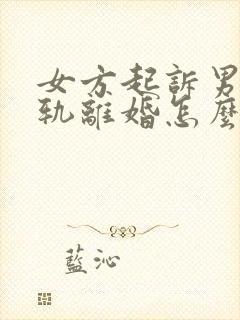 女方起訴男
軌離婚怎麼
藍沁